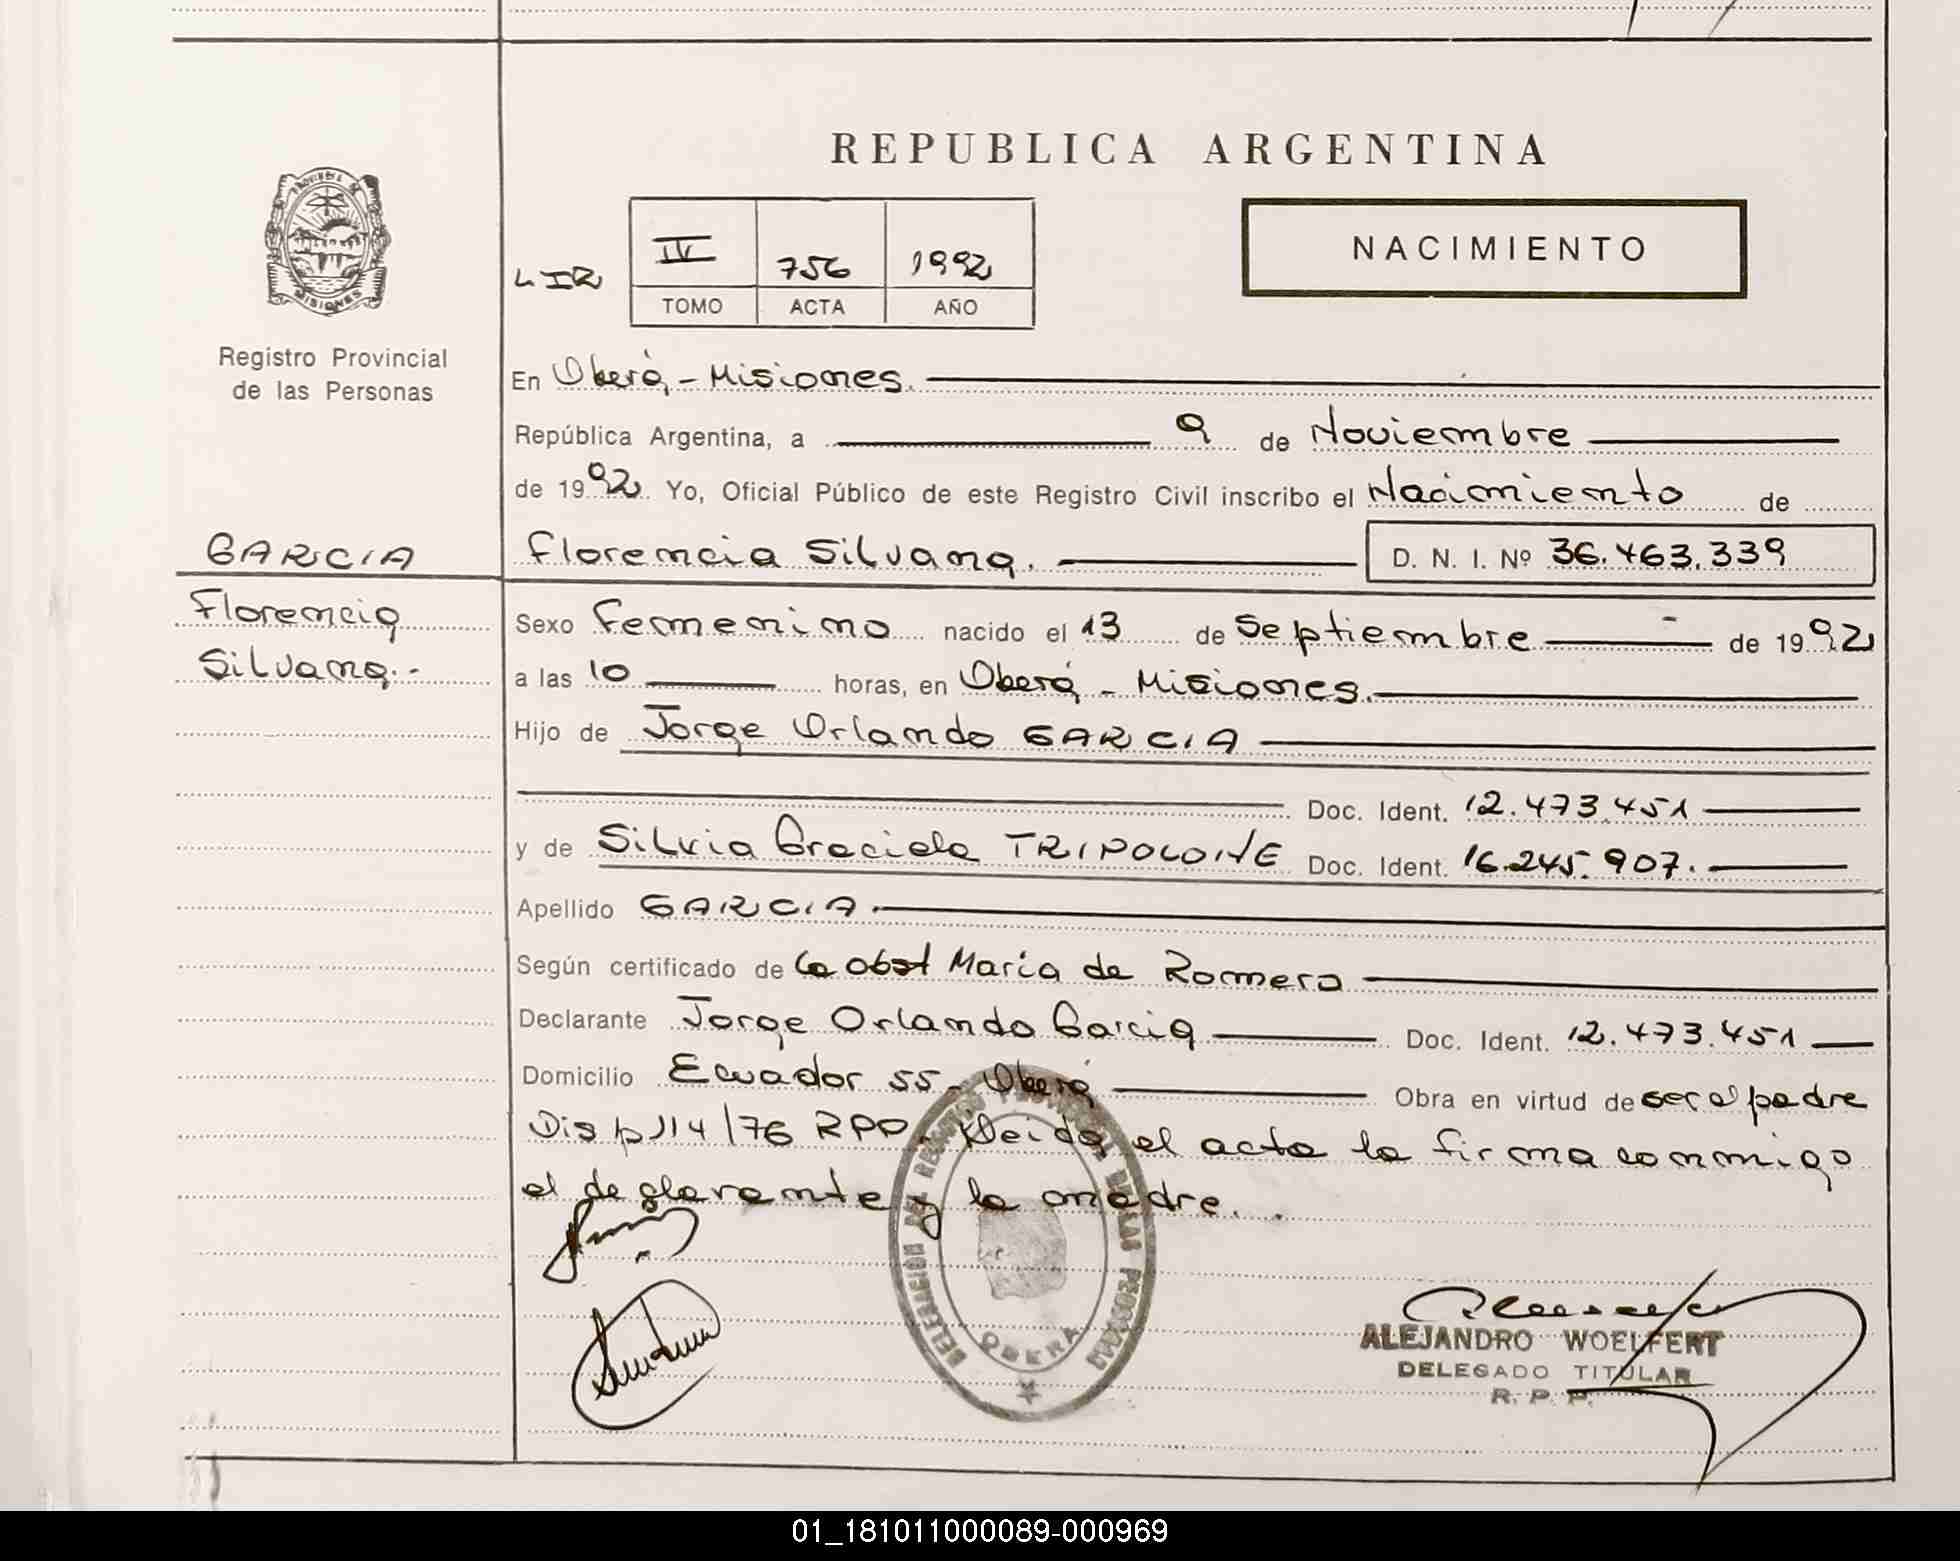 REPUBLICA ARGENTINA
PROVINCIA DE
MISIONES
Registro Provincial
de las Personas
IV 756 1992
TOMO ACTA AÑO
NACIMIENTO
En Oberá - Misiones.
República Argentina, a 9 de Noviembre
de 1992 Yo, Oficial Público de este Registro Civil inscribo el Nacimiento de
GARCIA Florencia Silvana. D. N. I. Nº 36.463.339
Florencia
Silvana.-
Sexo Femenino nacido el 13 de Septiembre de 1992
a las 10 horas, en Oberá - Misiones.
Hijo de Jorge Orlando GARCIA
Doc. Ident. 12.473.451
y de Silvia Graciela TRIPOLONE Doc. Ident. 16.245.907.
Apellido GARCIA.
Según certificado de la obst Maria de Romero
Declarante Jorge Orlando Garcia Doc. Ident. 12.473.451
Domicilio Ecuador 55 - Oberá Obra en virtud de ser el padre
Disp 114/76 RPP. Leida el acta la firma conmigo
el declarante y la madre..
DELEGACION DEL REGISTRO PROVINCIAL DE LAS PERSONAS
OBERA
ALEJANDRO WOELFERT
DELEGADO TITULAR
R. P. P.
01_181011000089-000969